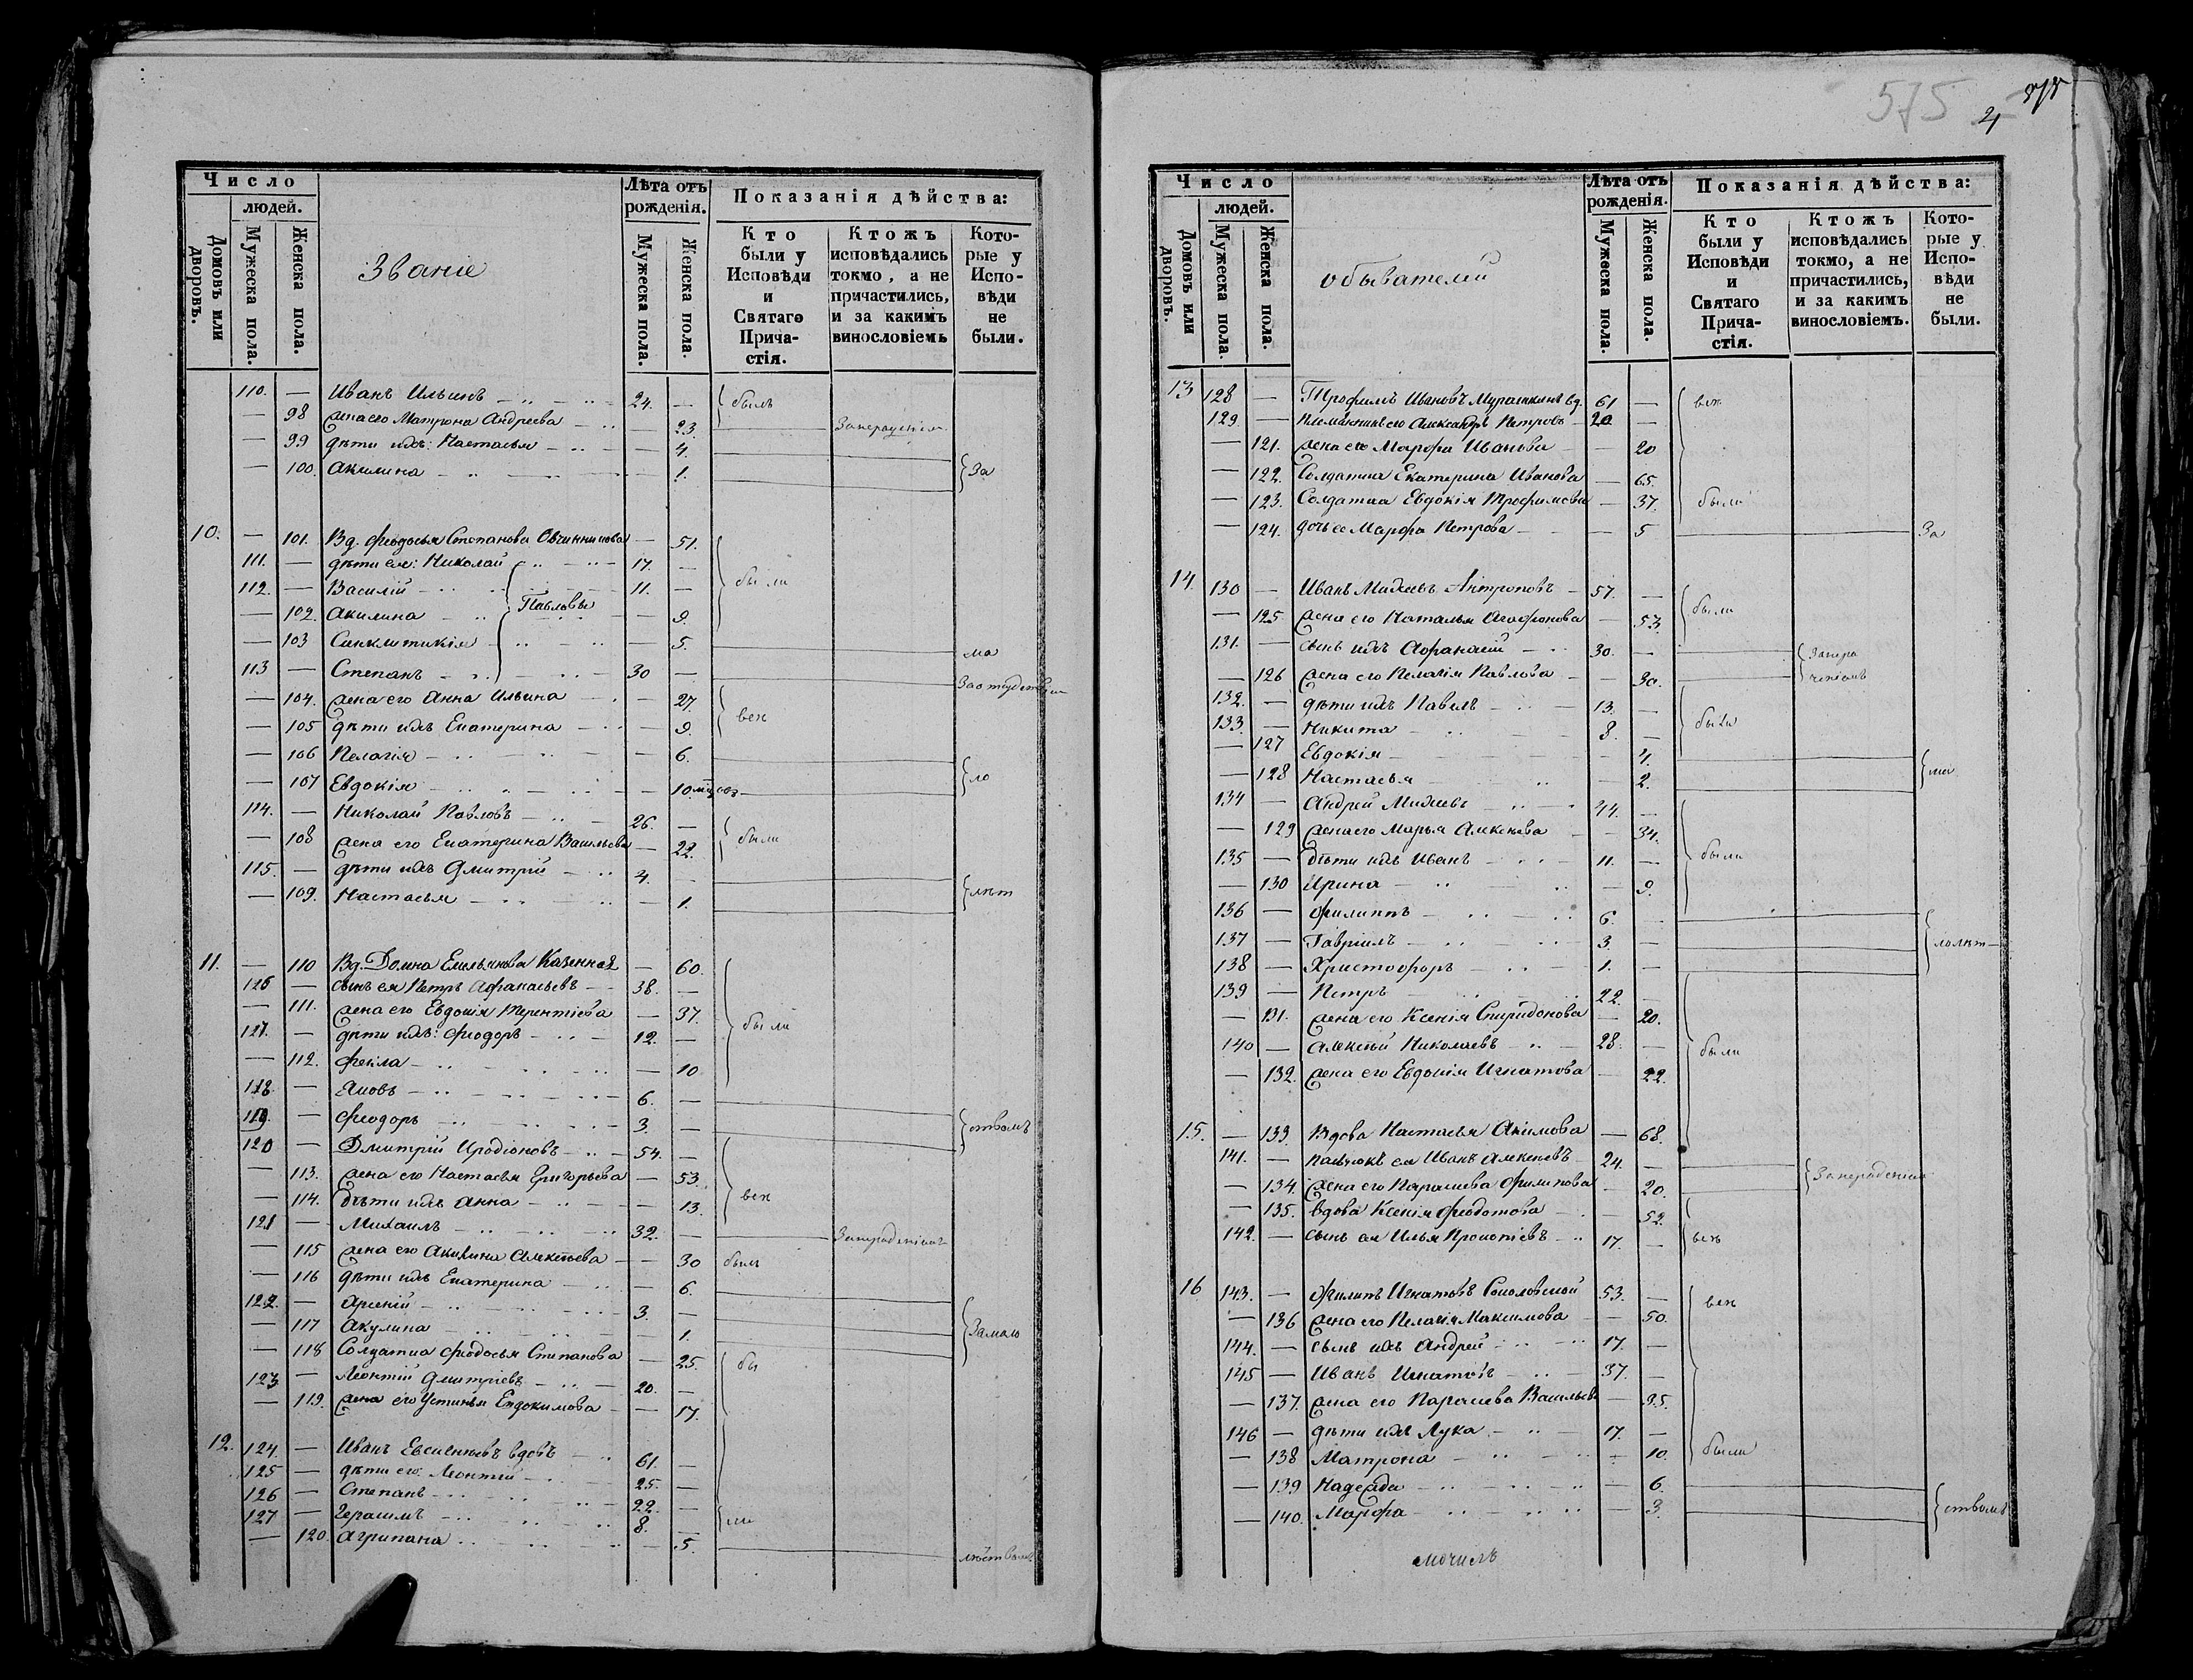 Число
людей.
Домовъ или дворовъ.
Мужеска пола.
Женска пола.
Званіе
Лѣта отъ рожденія.
Мужеска пола.
Женска пола.
Показанія дѣйства:
Кто были у Исповѣди и Святаго Прича-стія.
Ктожъ исповѣдались токмо, а не причастились, и за какимъ винословіемъ
Кото-рые у Испо-вѣди не были.
110. — Иванъ Ильинъ 24. — былъ
— 98 жена его Матрона Андреева — 23.
— 99 дѣти ихъ: Настасья — 4.
— 100. Акилина — 1. За
10. — 101. Вд. Феодосья Степанова Овчинникова — 51.
111. — дѣти ея: Николай 17. —
112. — Василій 11. — были
— 102. Акилина Павловы — 9.
— 103 Синклитикія — 5. ма
113 — Степанъ 30 —
— 104. жена его Анна Ильина — 27.
— 105 дѣти ихъ Екатерина — 9. вен
— 106 Пелагія — 6.
— 107 Евдокія — 10 ло
114. — Николай Павловъ 26. —
— 108 жена его Екатерина Васильева — 22. были
115. — дѣти ихъ Дмитрій 4. —
— 109. Настасья — 1. лѣт
11. — 110 Вд. Домна Емельянова Казенная — 60.
116 — сынъ ея Петръ Афанасьевъ 38. —
— 111. жена его Евдокія Терентіева — 37. были
117. — дѣти ихъ: Феодоръ 12. —
— 112. Фекла — 10
118 — Яковъ 6. —
119. — Феодоръ 3. — ствомъ
120 — Дмитрій Иродіоновъ 54. —
— 113. жена его Настасья Григорьева — 53.
— 114. дѣти ихъ Анна — 13. вен
121 — Михаилъ 32. —
— 115 жена его Акилина Алексѣева — 30 былъ
— 116 дѣти ихъ Екатерина — 6.
122. — Арсеній 3. —
— 117 Акулина — 1. Замало
— 118 Солдатка Феодосья Степанова — 25. бы
123 — Леонтій Дмитріевъ 20. —
— 119. жена его Устинья Евдокимова — 17.
12. 124. — Иванъ Евсигнѣевъ вдовъ 61. —
125 — дѣти его: Леонтій 25. —
126 — Степанъ 22. —
127 — Герасимъ 8. — ли
— 120. Агрипина — 5.
575
Число
людей.
Домовъ или дворовъ.
Мужеска пола.
Женска пола.
обывателей
Лѣта отъ рожденія.
Мужеска пола.
Женска пола.
Показанія дѣйства:
Кто были у Исповѣди и Святаго Прича-стія.
Ктожъ исповѣдались токмо, а не причастились, и за какимъ винословіемъ.
Кото-рые у Испо-вѣди не были.
13 128 — Трофимъ Ивановъ Мурашкинъ вд. 61 — вен
129 — племянникъ его Александръ Петровъ 20 —
— 121. жена его Марфа Иванова — 20
— 122. Солдатка Екатерина Иванова — 65.
— 123. Солдатка Евдокія Трофимова — 37. были
— 124. дочь ее Марфа Петрова — 5 За
14. 130 — Иванъ Михеевъ Антроповъ 57. —
— 125 жена его Наталья Агафонова — 53. были
131. — сынъ ихъ Афанасій 30. —
— 126 жена его Пелагія Павлова — 30.
132. — дѣти ихъ Павелъ 13. —
133 — Никита 8. — были
— 127 Евдокія — 4.
— 128 Настасья — 2. ма
134 — Андрей Михеевъ 44. —
— 129 жена его Марья Алексѣева — 34.
135 — дѣти ихъ Иванъ 11. — были
— 130 Ирина — 9.
136 — Филиппъ 6. —
137 — Гавріилъ 3 — лолѣт
138 — Христофоръ 1. —
139 — Петръ 22. —
— 131. жена его Ксенія Спиридонова — 20.
140 — Алексѣй Николаевъ 28. — были
— 132. жена его Евдокія Игнатова — 22.
15. — 133. Вдова Настасья Акимова — 68.
141. — ея Иванъ Алексѣевъ 24. —
— 134. жена его Парасковья Филипова — 20.
— 135. вдова Ксенія Федотова — 52.
142. — сынъ ея Илья Прокопіевъ 17. —
16 143. — Филипъ Игнатовъ Соколовской 53. — вен
— 136 жена его Пелагія Максимова — 50.
144. — сынъ ихъ Андрей 17. —
145 — Иванъ Игнатовъ 37. —
— 137. жена его Параскева Васильев — 35.
146 — дѣти ихъ Лука 17. —
— 138 Матрона — 10. были
— 139 Надежда — 6.
— 140. Марфа — 3. ствомъ